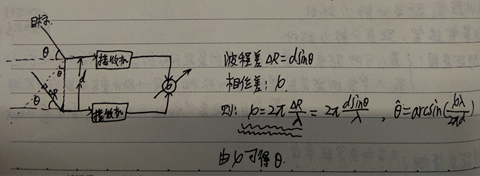 目标
θ
接收机
θ
d
φ
θ
ΔR
接收机
波程差 ΔR=dsinθ
相位差: φ.
则: φ=2π ΔR/λ = 2π dsinθ/λ , θ̂=arcsin(φλ/2πd)
由φ可得θ.